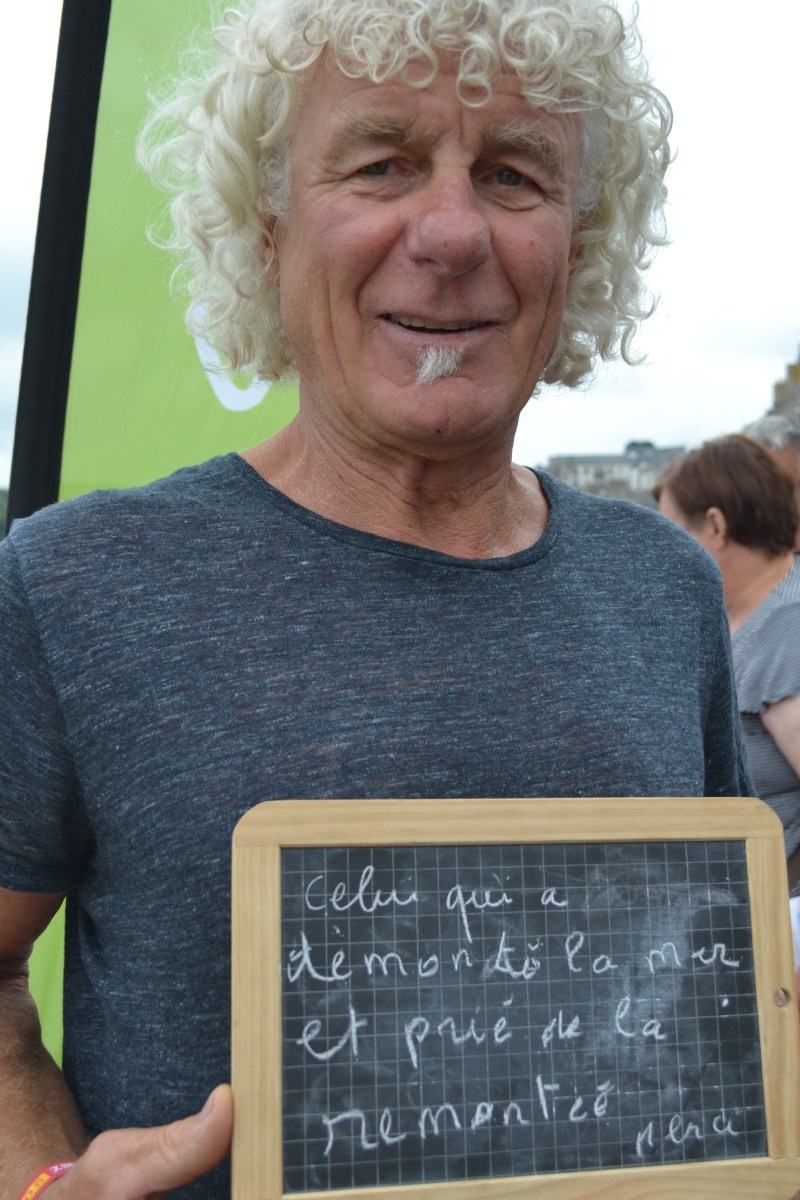 Celui qui a
démonté la mer
et prié de la
remontée merci